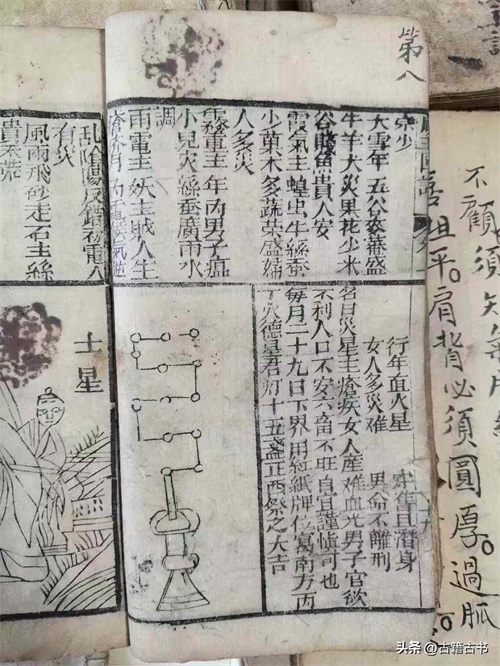 不顧。須
善坦平。肩背必須圓厚。過胍
第八
大雪年五谷豪蕃盛
牛羊大災果花少米
谷賤魚貴人安
霞氣主蝗虫牛絲蚕
少菓木多蔬菜盛婦
人多災
霧重主年丙男子瘟
小兒災絲蚕廣雨水
調
雨電主妖主賊人生
行年血火星 且潛身
女人多災难 男命不離刑
名曰災星主瘡疾女人産难血光男子官欲
不利人口不安六畜不旺自宜謹慎可也
每月二十九日下界用紅紙牌位寫南方丙
丁火德星君灯十五盞正西祭之大吉
乱陰陽反錯
有災
風雨飛砂走石主絲
貴禾荒
土星
头条 @古籍古书